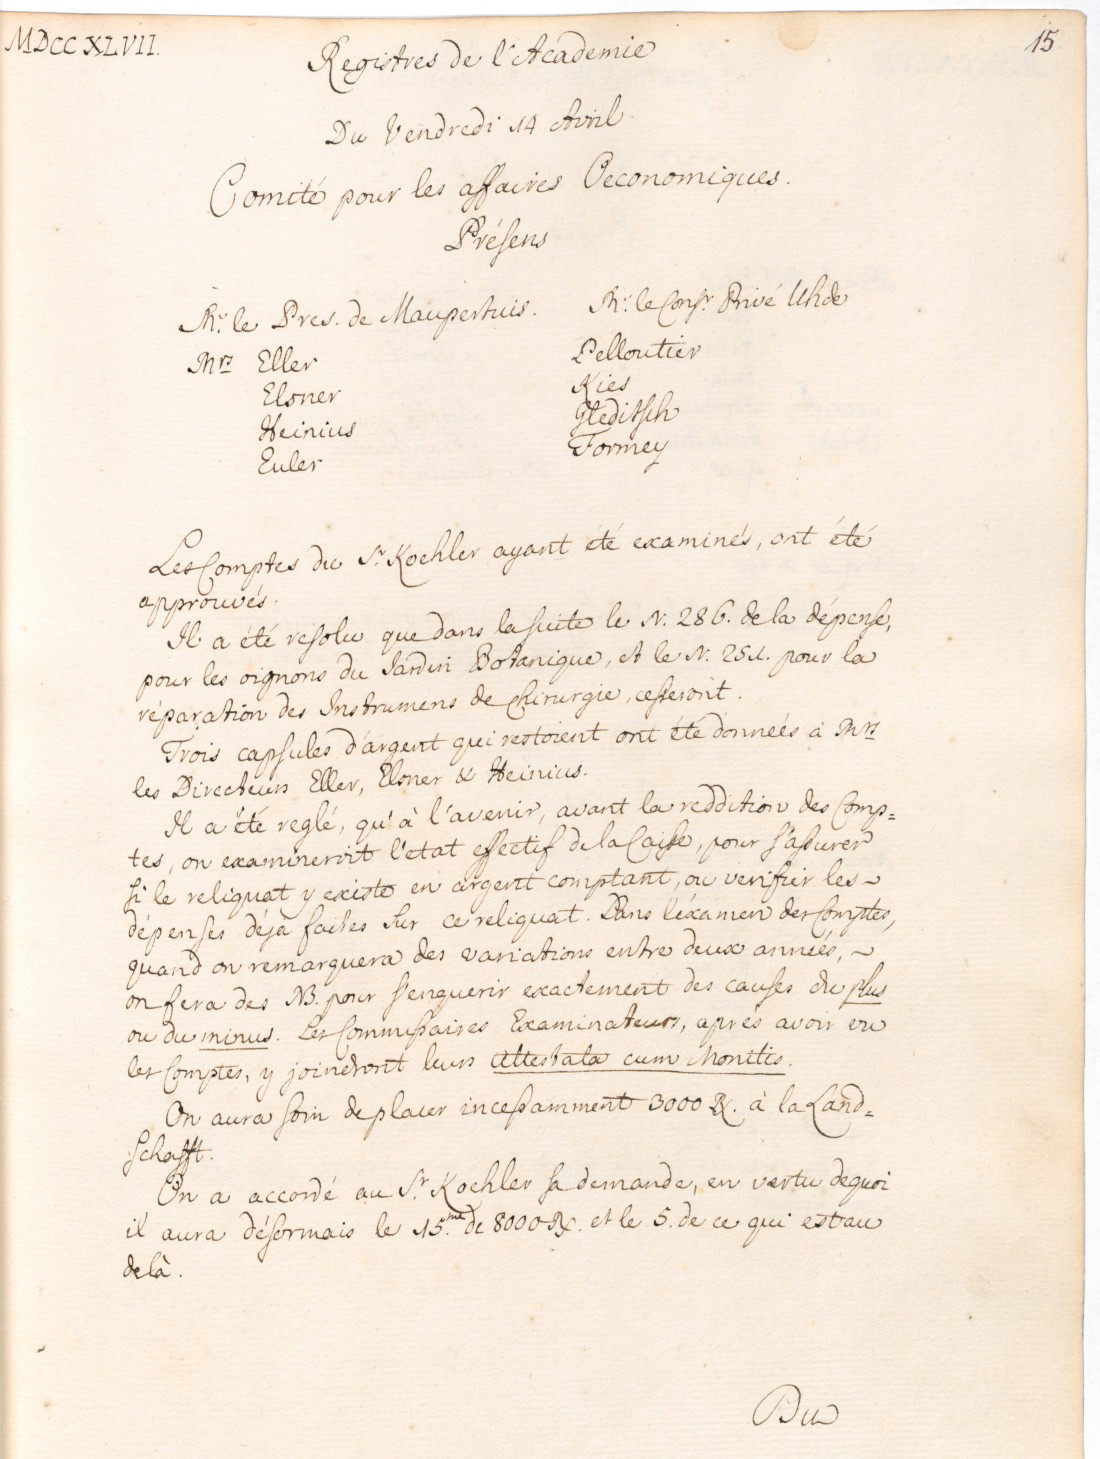 MDCCXLVII.
15
Registres de l'Academie
Du Vendredi 14 Avril
Comité pour les affaires Oeconomiques.
Présens
Mr. le Pres. de Maupertuis.
Mr. le Consr. Privé Uhde
Mrs Eller
Pelloutier
Elsner
Kies
Heinius
Gleditsch
Euler
Formey
Les Comptes du Sr. Koehler ayant été examinés, ont été
approuvés.
Il a été resolu que dans la suite le N. 286. de la dépense,
pour les oignons du Jardin Botanique, et le N. 251. pour la
réparation des Instrumens de chirurgie, cesseront.
Trois capsules d'argent qui restoient ont été données à Mrs
les Directeurs Eller, Elsner & Heinius.
Il a été reglé, qu'à l'avenir, avant la reddition des Comp=
tes, on examineroit l'etat effectif de la Caisse, pour s'assurer
si le reliquat y existe en argent comptant, ou verifier les ~
dépenses déja faites sur ce reliquat. Dans l'éxamen des Comptes,
quand on remarquera des variations entre deux années, ~
on fera des NB. pour s'enquerir exactement des causes du plus
ou du minus. Les Commissaires Examinateurs, après avoir vu
les Comptes, y joindront leurs Attestata cum Monitis.
On aura soin de placer incessamment 3000 R. à la Land=
schafft.
On a accordé au Sr. Koehler sa demande, en vertu dequoi
il aura désormais le 15.me de 8000 R. et le 5. de ce qui est au
delà.
Du